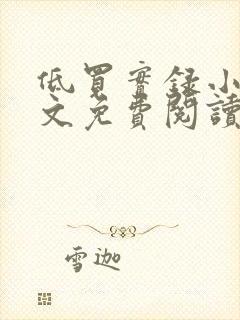 低買實錄小
文免費閱讀
雪迦